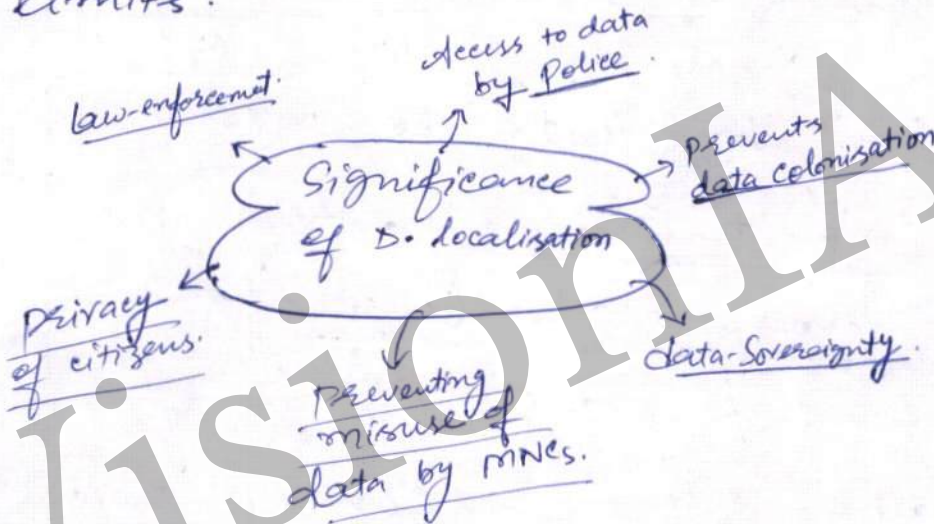 limits.
Access to data
by Police.
law-enforcemet.
Prevents
data colonisation
Significance
of D. localisation
privacy
of citizens.
data-Sovereignty.
Preventing
misuse of
data by MNCs.
VisionIA